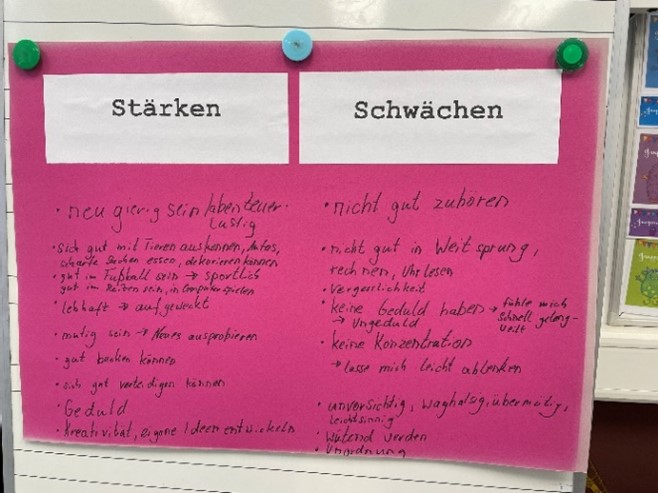 Stärken
· neugierig sein/abenteuer-
lustig
· sich gut mit Tieren auskennen, Autos,
scharfe Sachen essen, dekorieren können
· gut im Fußball sein → sportlich
gut im Reiten sein, in Computerspielen
· lebhaft → aufgeweckt
· mutig sein → Neues ausprobieren
· gut backen können
· sich gut verteidigen können
· Geduld
· Kreativität, eigene Ideen entwickeln
Schwächen
· nicht gut zuhören
· nicht gut in Weitsprung,
rechnen, Uhr lesen
· Vergesslichkeit
· keine Geduld haben → fühle mich
→ Ungeduld schnell gelang-
weilt
· keine Konzentration
→ lasse mich leicht ablenken
· unvorsichtig, waghalsig, übermütig,
leichtsinnig
· wütend werden
· Unordnung